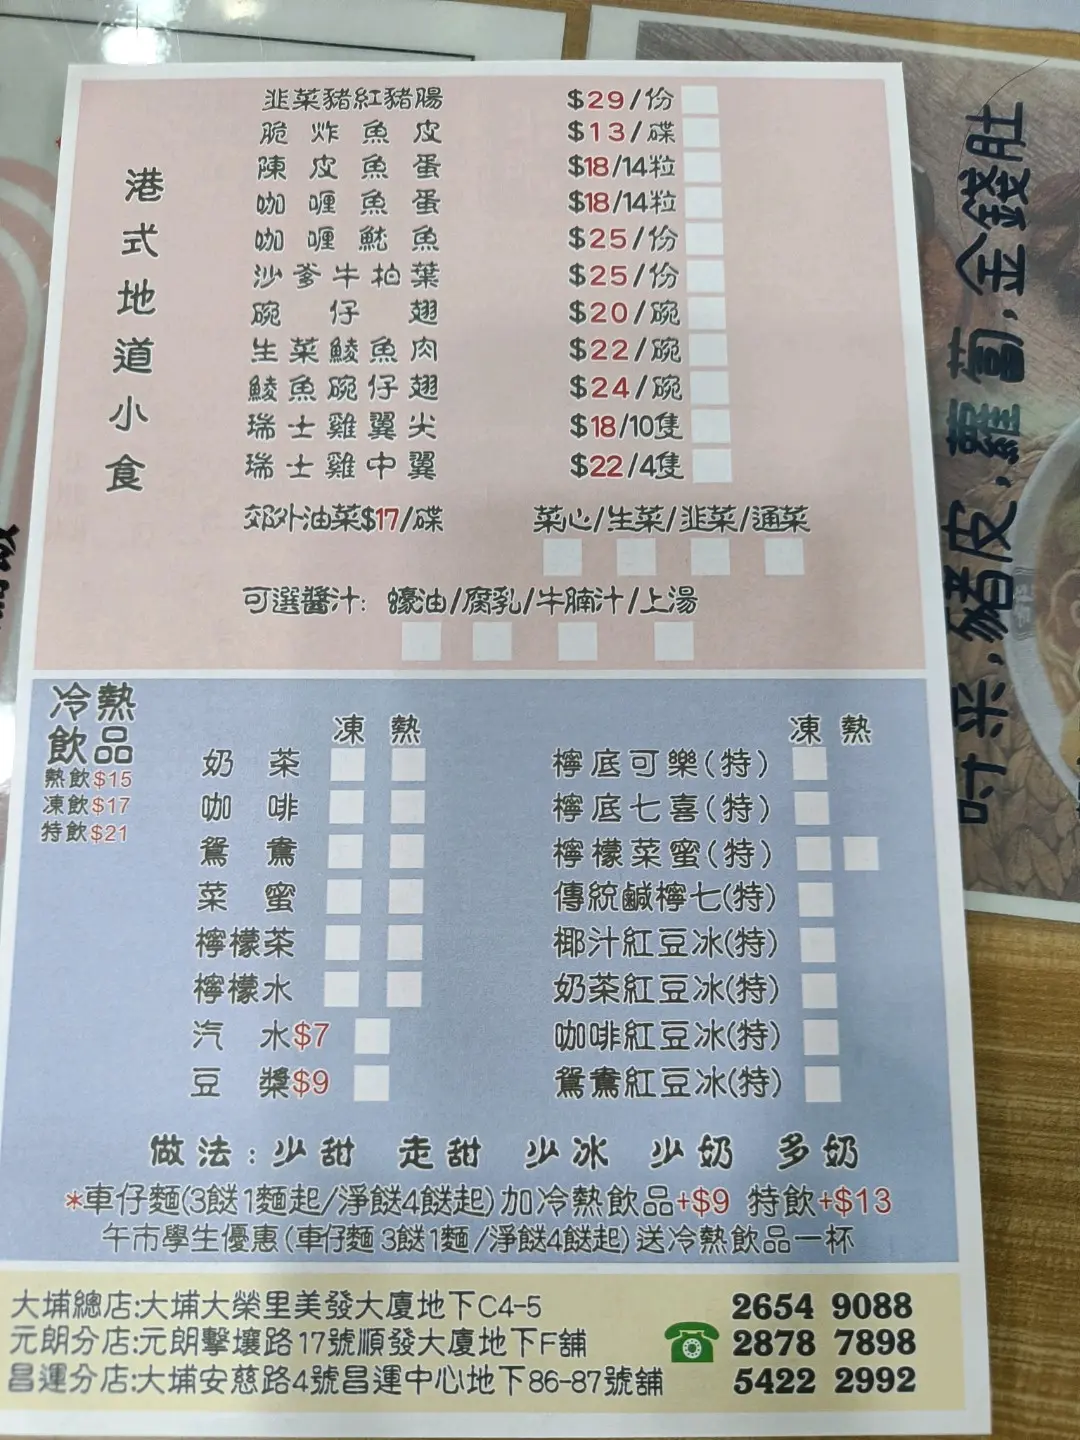 港式地道小食
韭菜豬紅豬腸 $29/份
脆炸魚皮 $13/碟
陳皮魚蛋 $18/14粒
咖喱魚蛋 $18/14粒
咖喱魷魚 $25/份
沙爹牛柏葉 $25/份
碗仔翅 $20/碗
生菜鯪魚肉 $22/碗
鯪魚碗仔翅 $24/碗
瑞士雞翼尖 $18/10隻
瑞士雞中翼 $22/4隻
郊外油菜$17/碟 菜心/生菜/韭菜/通菜
可選醬汁: 蠔油/腐乳/牛腩汁/上湯
冷熱飲品
熱飲$15
凍飲$17
特飲$21
凍 熱
奶茶
咖啡
鴛鴦
菜蜜
檸檬茶
檸檬水
汽水$7
豆漿$9
凍 熱
檸底可樂(特)
檸底七喜(特)
檸檬菜蜜(特)
傳統鹹檸七(特)
椰汁紅豆冰(特)
奶茶紅豆冰(特)
咖啡紅豆冰(特)
鴛鴦紅豆冰(特)
做法:少甜 走甜 少冰 少奶 多奶
*車仔麵(3餸1麵起/淨餸4餸起)加冷熱飲品+$9 特飲+$13
午市學生優惠(車仔麵3餸1麵/淨餸4餸起)送冷熱飲品一杯
大埔總店:大埔大榮里美發大廈地下C4-5 2654 9088
元朗分店:元朗擊壤路17號順發大廈地下F舖 2878 7898
昌運分店:大埔安慈路4號昌運中心地下86-87號舖 5422 2992
豬皮,蘿蔔,金錢肚